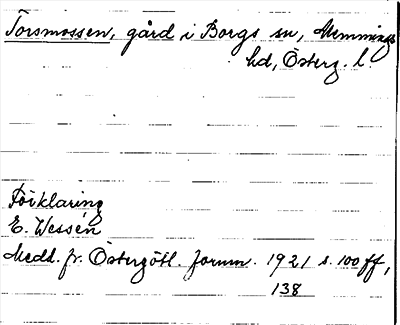 Torsmossen, gård i Borgs sn, Memmings
hd, Österg. l.
Förklaring
E. Wessén
Medd. fr. Östergötl. fornm. 1921 s. 100 ff,
138